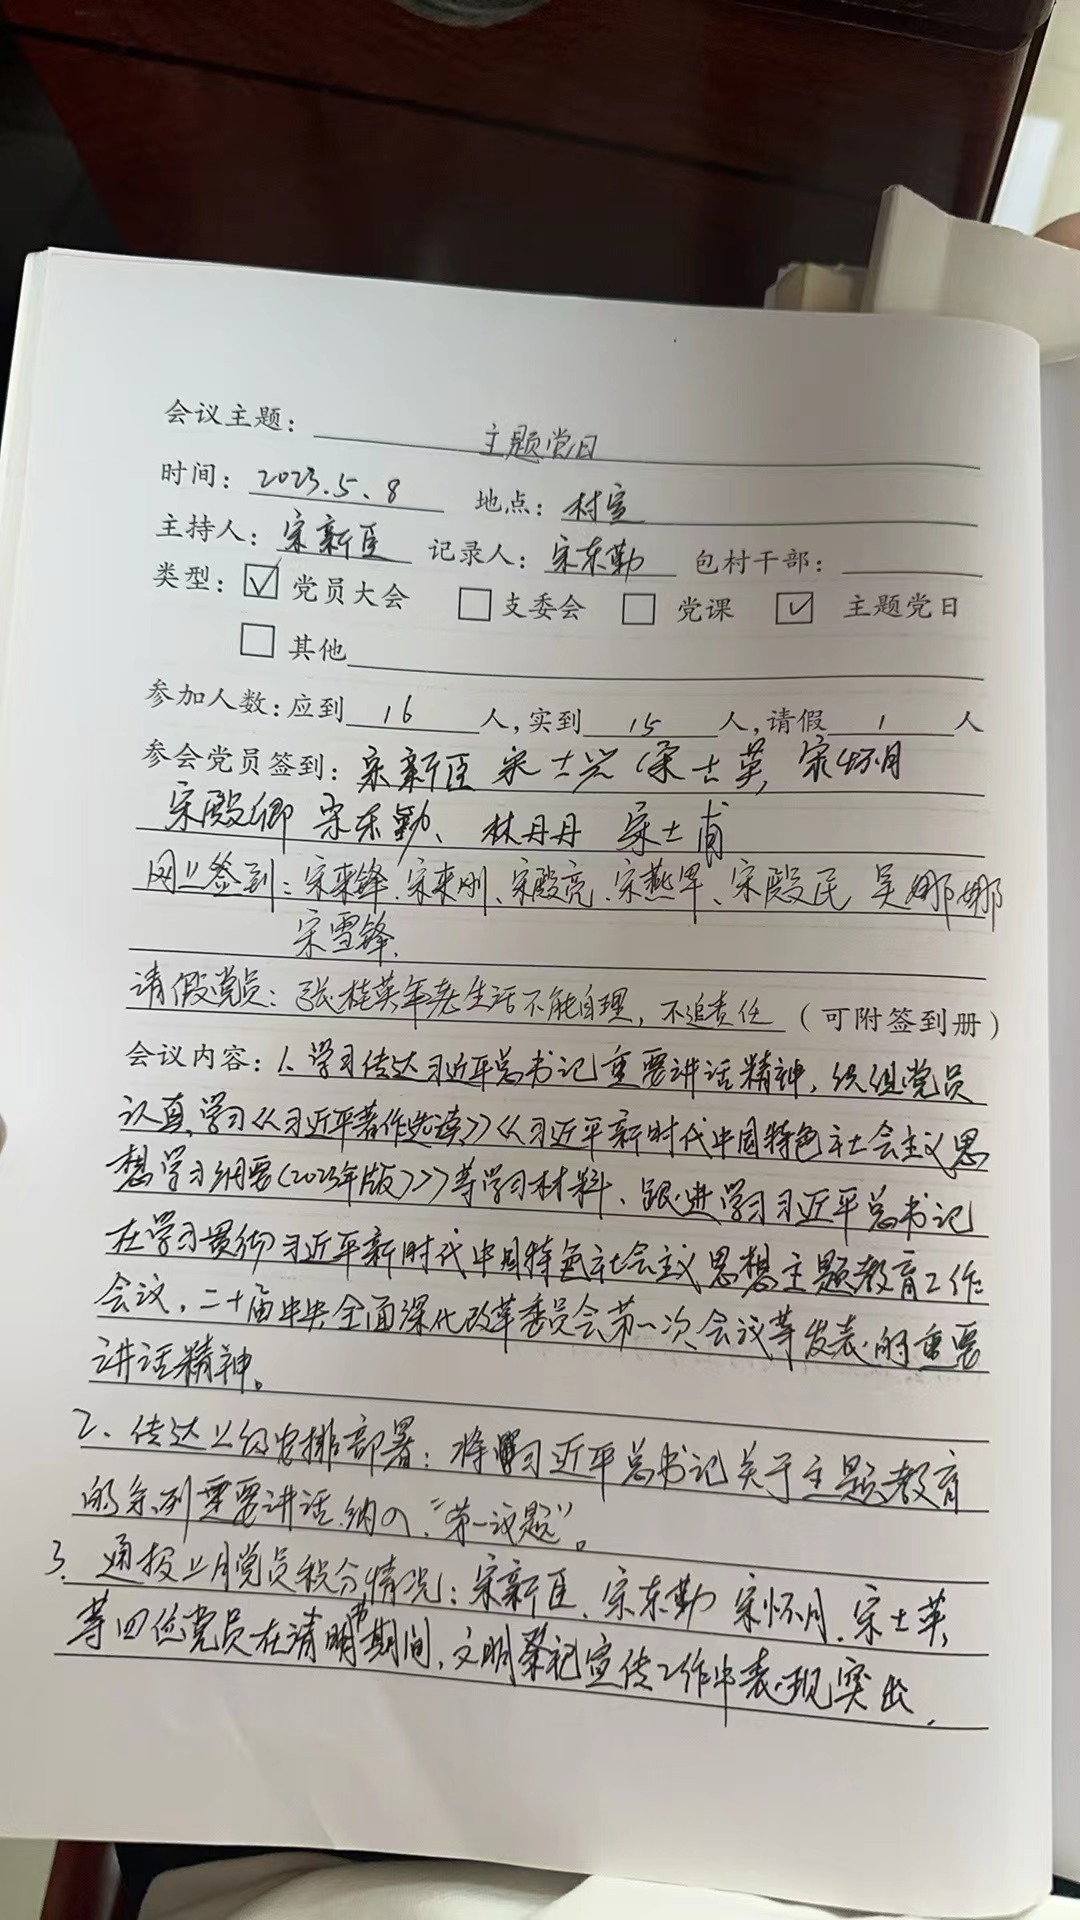 会议主题：主题党日
时间：2023.5.8 地点：村室
主持人：宋新臣 记录人：宋东勤 包村干部：
类型：☑党员大会 □支委会 □党课 ☑主题党日
□其他
参加人数：应到16人，实到15人，请假1人
参会党员签到：宋新臣 宋士兴 宋士英，宋怀月
宋殿卿 宋东勤、林丹丹 宋士甫
网上签到：宋来锋、宋来刚、宋殿亮、宋燕军、宋殿民 吴娜娜
宋雪锋、
请假党员：张桂英年老生活不能自理，不追责任（可附签到册）
会议内容：1、学习传达习近平总书记重要讲话精神，组织党员
认真学习《习近平著作选读》《习近平新时代中国特色社会主义思
想学习纲要（2023年版）》等学习材料、跟进学习习近平总书记
在学习贯彻习近平新时代中国特色社会主义思想主题教育工作
会议，二十届中央全面深化改革委员会第一次会议等发表的重要
讲话精神。
2、传达上级安排部署：将习近平总书记关于主题教育
的系列重要讲话纳入“第一议题”。
3、通报上月党员积分情况：宋新臣、宋东勤 宋怀月、宋士英，
等四位党员在清明节期间，文明祭祀宣传工作中表现突出，